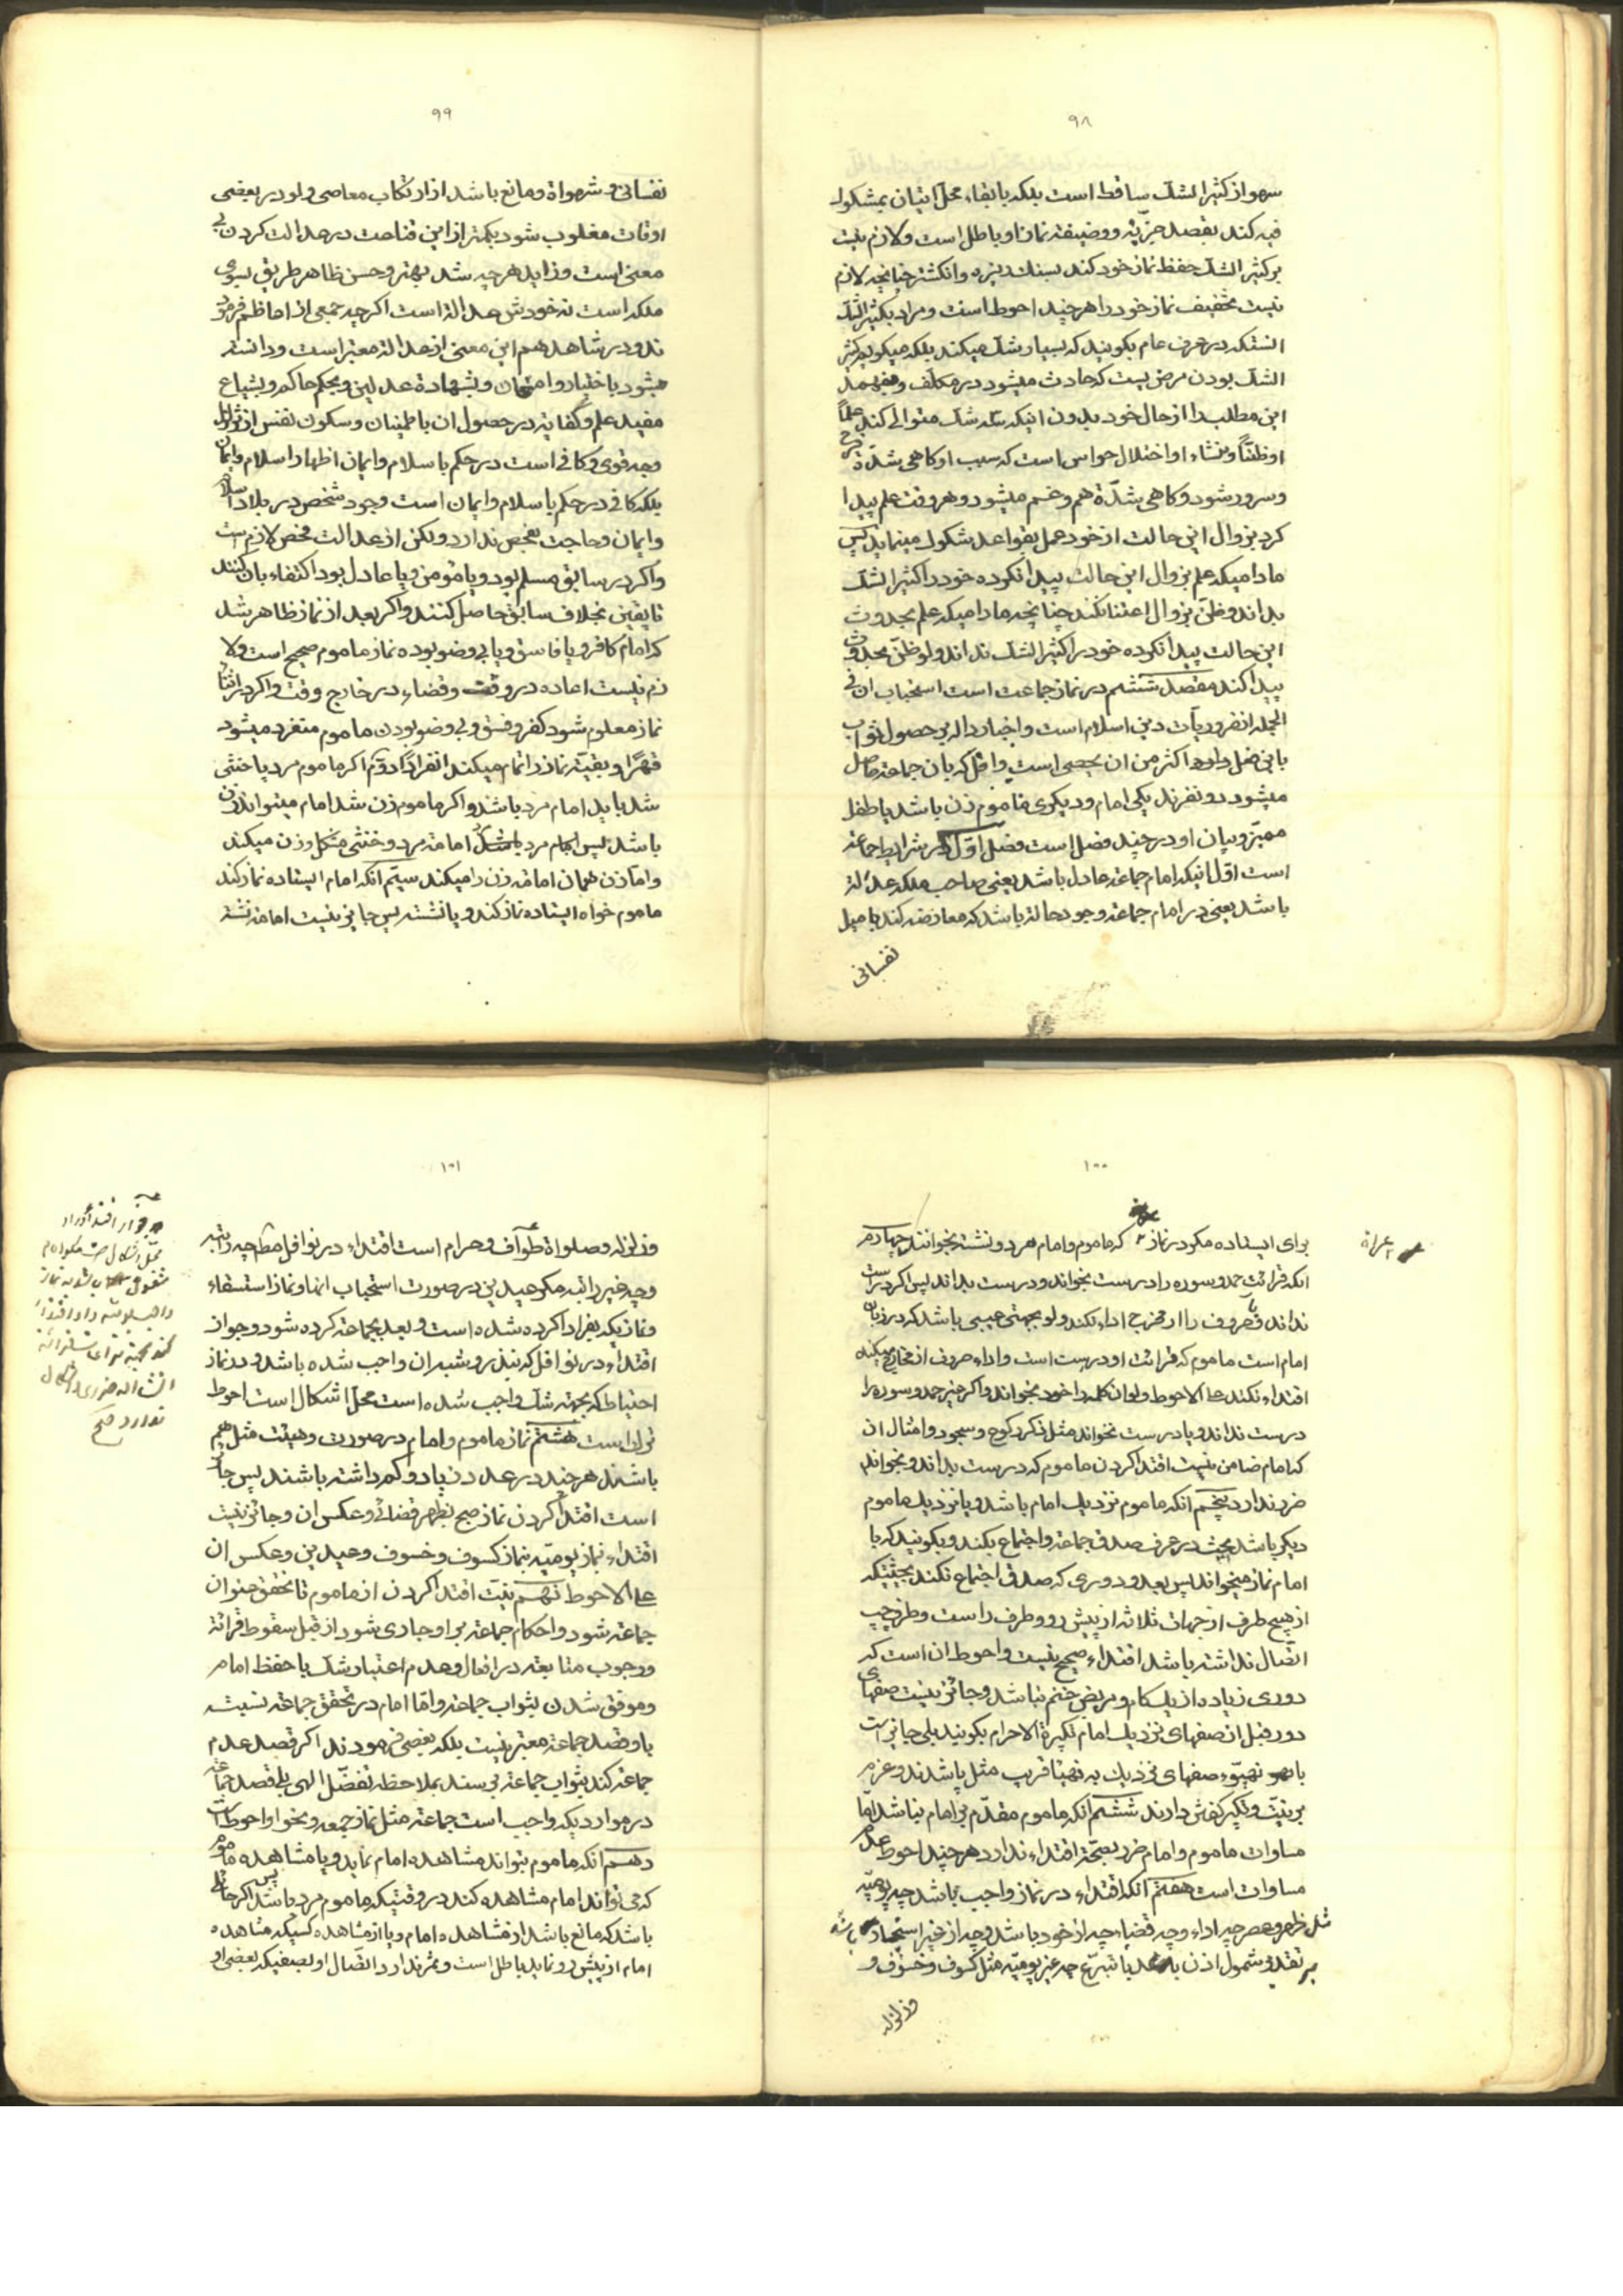 ۹۸
سهو از کثیر الشک ساقط است بلکه با بقاء محل اتیان بمشکوک
فیه کند بقصد جزئیة و وضیفة نماز او باطل است و لازم نیست
بر کثیر الشک حفظ نماز خود کند بسنك ریزه و انکشتر چنانچه لازم
نیست تخفیف نماز خود را هر چند احوط است و مراد بکثیر الشک
انستکه در عرف عام بکویند که بسیار شک میکند بلکه میکویم کثیر
الشک بودن مرضی است که حادث میشود در مکلف و میفهمد
این مطلب را از حال خود بدون اینکه سه شک متوالی کند علماً
او ظناً و منشاء او اختلال حواس است که سبب او کاهی شدّة فرح
و سرور شود و کاهی بشدّة هم و غم میشود و هر وقت علم پیدا
کرد بزوال این حالت از خود عمل بقواعد شکوک مینماید پس
مادامیکه علم بزوال این حالت پیدا نکرده خود را کثیر الشک
بداند و ظن بزوال اعتنا نکند چنانچه مادامیکه علم بحدوث
این حالت پیدا نکرده خود را کثیر الشک نداند و لو ظن بحدوث
پیدا کند مقصد ششم در نماز جماعت است استحباب ان فی
الجمله از ضروریات دین اسلام است و اخبار داله بر حصول ثواب
باین فعل وارد اکثر من ان یحصی است و اقل که بان جماعة حاصل
میشود دو نفرند یکی امام و دیکری ماموم زن باشد یا طفل
ممیّز و بیان او در چند فصل است فصل اوّل در شرایط جماعة
است اوّل اینکه امام جماعة عادل باشد یعنی صاحب ملکه عدالة
باشد یعنی در امام جماعة وجود حالة باشد که معارضه کند با میل
نفسانی
۹۹
نفسانی و شهواة و مانع باشد از ارتکاب معاصی و لو در بعضی
اوقات مغلوب شود بکمتر از این قناعت در عدالت کردن بی
معنی است و زاید هر چه شد بهتر و حسن ظاهر طریق بسوی
ملکه است نه خودش عدالة است اکر چه جمعی از اعاظم فرمود
ند و در شاهد هم این معنی از عدالة معتبر است و دانسته
میشود باختبار و امتحان و بشهادة عدلین و بحکم حاکم و بشیاع
مفید علم و کفایة در حصول ان باطمینان و سکون نفس از
وجه قوی و کافی است در حکم باسلام و ایمان اظهار اسلام و ایمان
بلکه کافی در حکم باسلام و ایمان است وجود شخص در بلاد اسلام
و ایمان و حاجت بفحص ندارد و لکن از عدالت فحص لازم است
و اکر در سابق مسلم بود و یا مؤمن و یا عادل بود اکتفاء بان کنند
تا یقین بخلاف سابق حاصل کنند و اکر بعد از نماز ظاهر شد
که امام کافر و یا فاسق و یا بی وضو بوده نماز ماموم صحیح است و لا
زم نیست اعاده در وقت و قضاء در خارج وقت و اکر در اثنای
نماز معلوم شود کفر و فسق و بی وضو بودن ماموم منفرد میشود
قهرًا و بقیّة نماز را تمام میکند انفرادًا دوّم اکر ماموم مرد یا خنثی
شد باید امام مرد باشد و اکر ماموم زن شد امام میتواند زن
باشد پس امام مرد امامة مرد و خنثی مشکل و زن میکند
و امّا زن همان امامة زن را میکند سیّم انکه امام ایستاده نماز کند
ماموم خواه ایستاده نماز کند و یا نشسته پس جایز نیست امامة نشسته
۱۰۰
برای ایستاده مکر در نماز که ماموم و امام هر دو نشسته بخوانند چهارم
عراة
انکه قرائت حمد و سوره را درست بخواند و درست بداند پس اکر درست
نداند و یا حروف را از مخرج اداء نکند و لو بجهتی عیبی باشد که در زبان
امام است ماموم که قرائت او درست است و اداء حروف از مخارج میکند
اقتداء نکند علی الاحوط و لو ان کلمه را خود بخواند و اکر غیر حمد و سوره را
درست نداند و یا درست نخواند مثل ذکر رکوع و سجود و امثال ان
که امام ضامن نیست اقتدا کردن ماموم که درست بداند و بخواند
ضرر ندارد پنجم انکه ماموم نزدیك امام باشد و یا نزدیك ماموم
دیکر باشد بحیث در عرف صدق جماعة و اجتماع بکند و بکویند که با
امام نماز میخواند پس بعد و دوری که صدق اجتماع نکند بحیثیکه
از هیچ طرف از جهات ثلاثه از پیش رو و طرف راست و طرف چپ
اتصال نداشته باشد اقتداء صحیح نیست و احوط ان است که
دوری زیاده از یك کام و مربض غنم نباشد و جائز نیست صفهای
دور قبل از صفهای نزدیك امام تکبیرة الاحرام بکویند بلی جایز است
با تهیّؤ صفهای نزدیك به تهیّا قریب مثل پاشدند و عزم
بر نیّت و تکبیر کفتن دارند ششم انکه ماموم مقدّم بر امام نباشد امّا
مساوات ماموم و امام ضرر بصحّة اقتداء ندارد هر چند احوط عدم
مساوات است هفتم انکه اقتداء در نماز واجب باشد چه یومیّه
مثل ظهر و عصر چه اداء و چه قضاء چه از خود باشد و چه از غیر
بر تقدیر شمول اذن یا تبرّع چه غیر یومیّه مثل کسوف و خسوف و
و زلزله
۱۰۱
و زلزله و صلواة طواف و حرام است اقتداء در نوافل مطلقا چه راتبه
و چه غیر راتبه مکر عیدین در صورت استحباب انها و نماز استسقاء
و نمازیکه بفرادا کرده شده است و بعد بجماعة کرده شود و جواز
اقتداء در نوافل که بنذر و شبه ان واجب شده باشد و در نماز
احتیاط که بجهة شک واجب شده است محل اشکال است احوط
ترك است هشتم نماز ماموم و امام در صورت و هیئت مثل هم
باشند هر چند در عدد زیاد و کم داشته باشند پس جائز
است اقتدا کردن نماز صبح بظهر قضائی و عکس ان و جائز نیست
اقتداء نماز یومیّه بنماز کسوف و خسوف و عیدین و عکس ان
علی الاحوط نهم نیّت اقتدا کردن از ماموم تا تحقق عنوان
جماعة شود و احکام جماعة بر او جاری شود از قبل سقوط قرائة
و وجوب متابعة در افعال و عدم اعتبار شک با حفظ امام
و موفق شدن بثواب جماعة و امّا امام در تحقق جماعة نسبت
باو قصد جماعة معتبر نیست بلکه بعضی فرمودند اکر قصد عدم
جماعة کند بثواب جماعة برسد بملاحظه تفضّل الهی بلی قصد جماعة
در مواردیکه واجب است جماعة مثل نماز جمعه و نحو او احوط است
دهم انکه ماموم بتواند مشاهده امام نماید و یا مشاهده ماموم
که می تواند امام مشاهده کند در وقتیکه ماموم مرد باشد پس اکر حائلی
باشد که مانع باشد از مشاهده امام و یا از مشاهده کسیکه مشاهده
امام از پیش رو نماید باطل است و ثمر ندارد اتصال او بصفیکه بعضی او